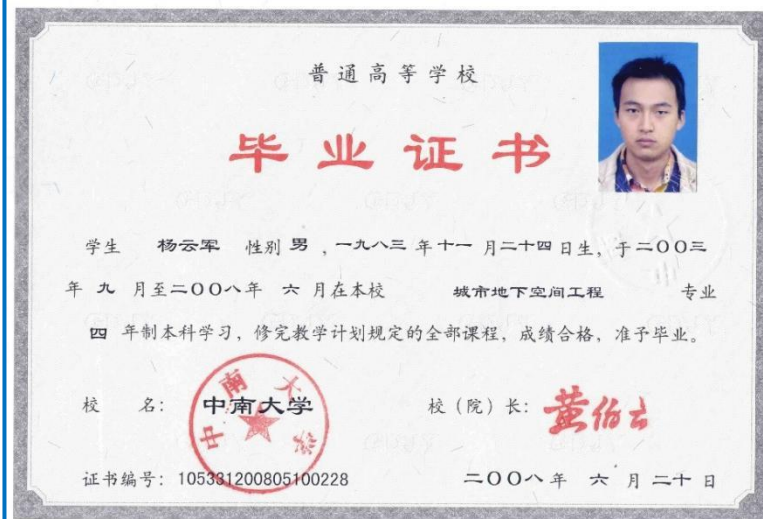 普通高等学校
毕业证书
学生 杨云军 性别 男 ，一九八三 年 十一 月二十四日生，于二〇〇三
年 九 月至二〇〇八年 六 月在本校 城市地下空间工程 专业
四 年制本科学习，修完教学计划规定的全部课程，成绩合格，准予毕业。
校 名： 中南大学 校（院）长： 黄伯云
中南大学
证书编号：105331200805100228 二〇〇八年 六 月 二十 日